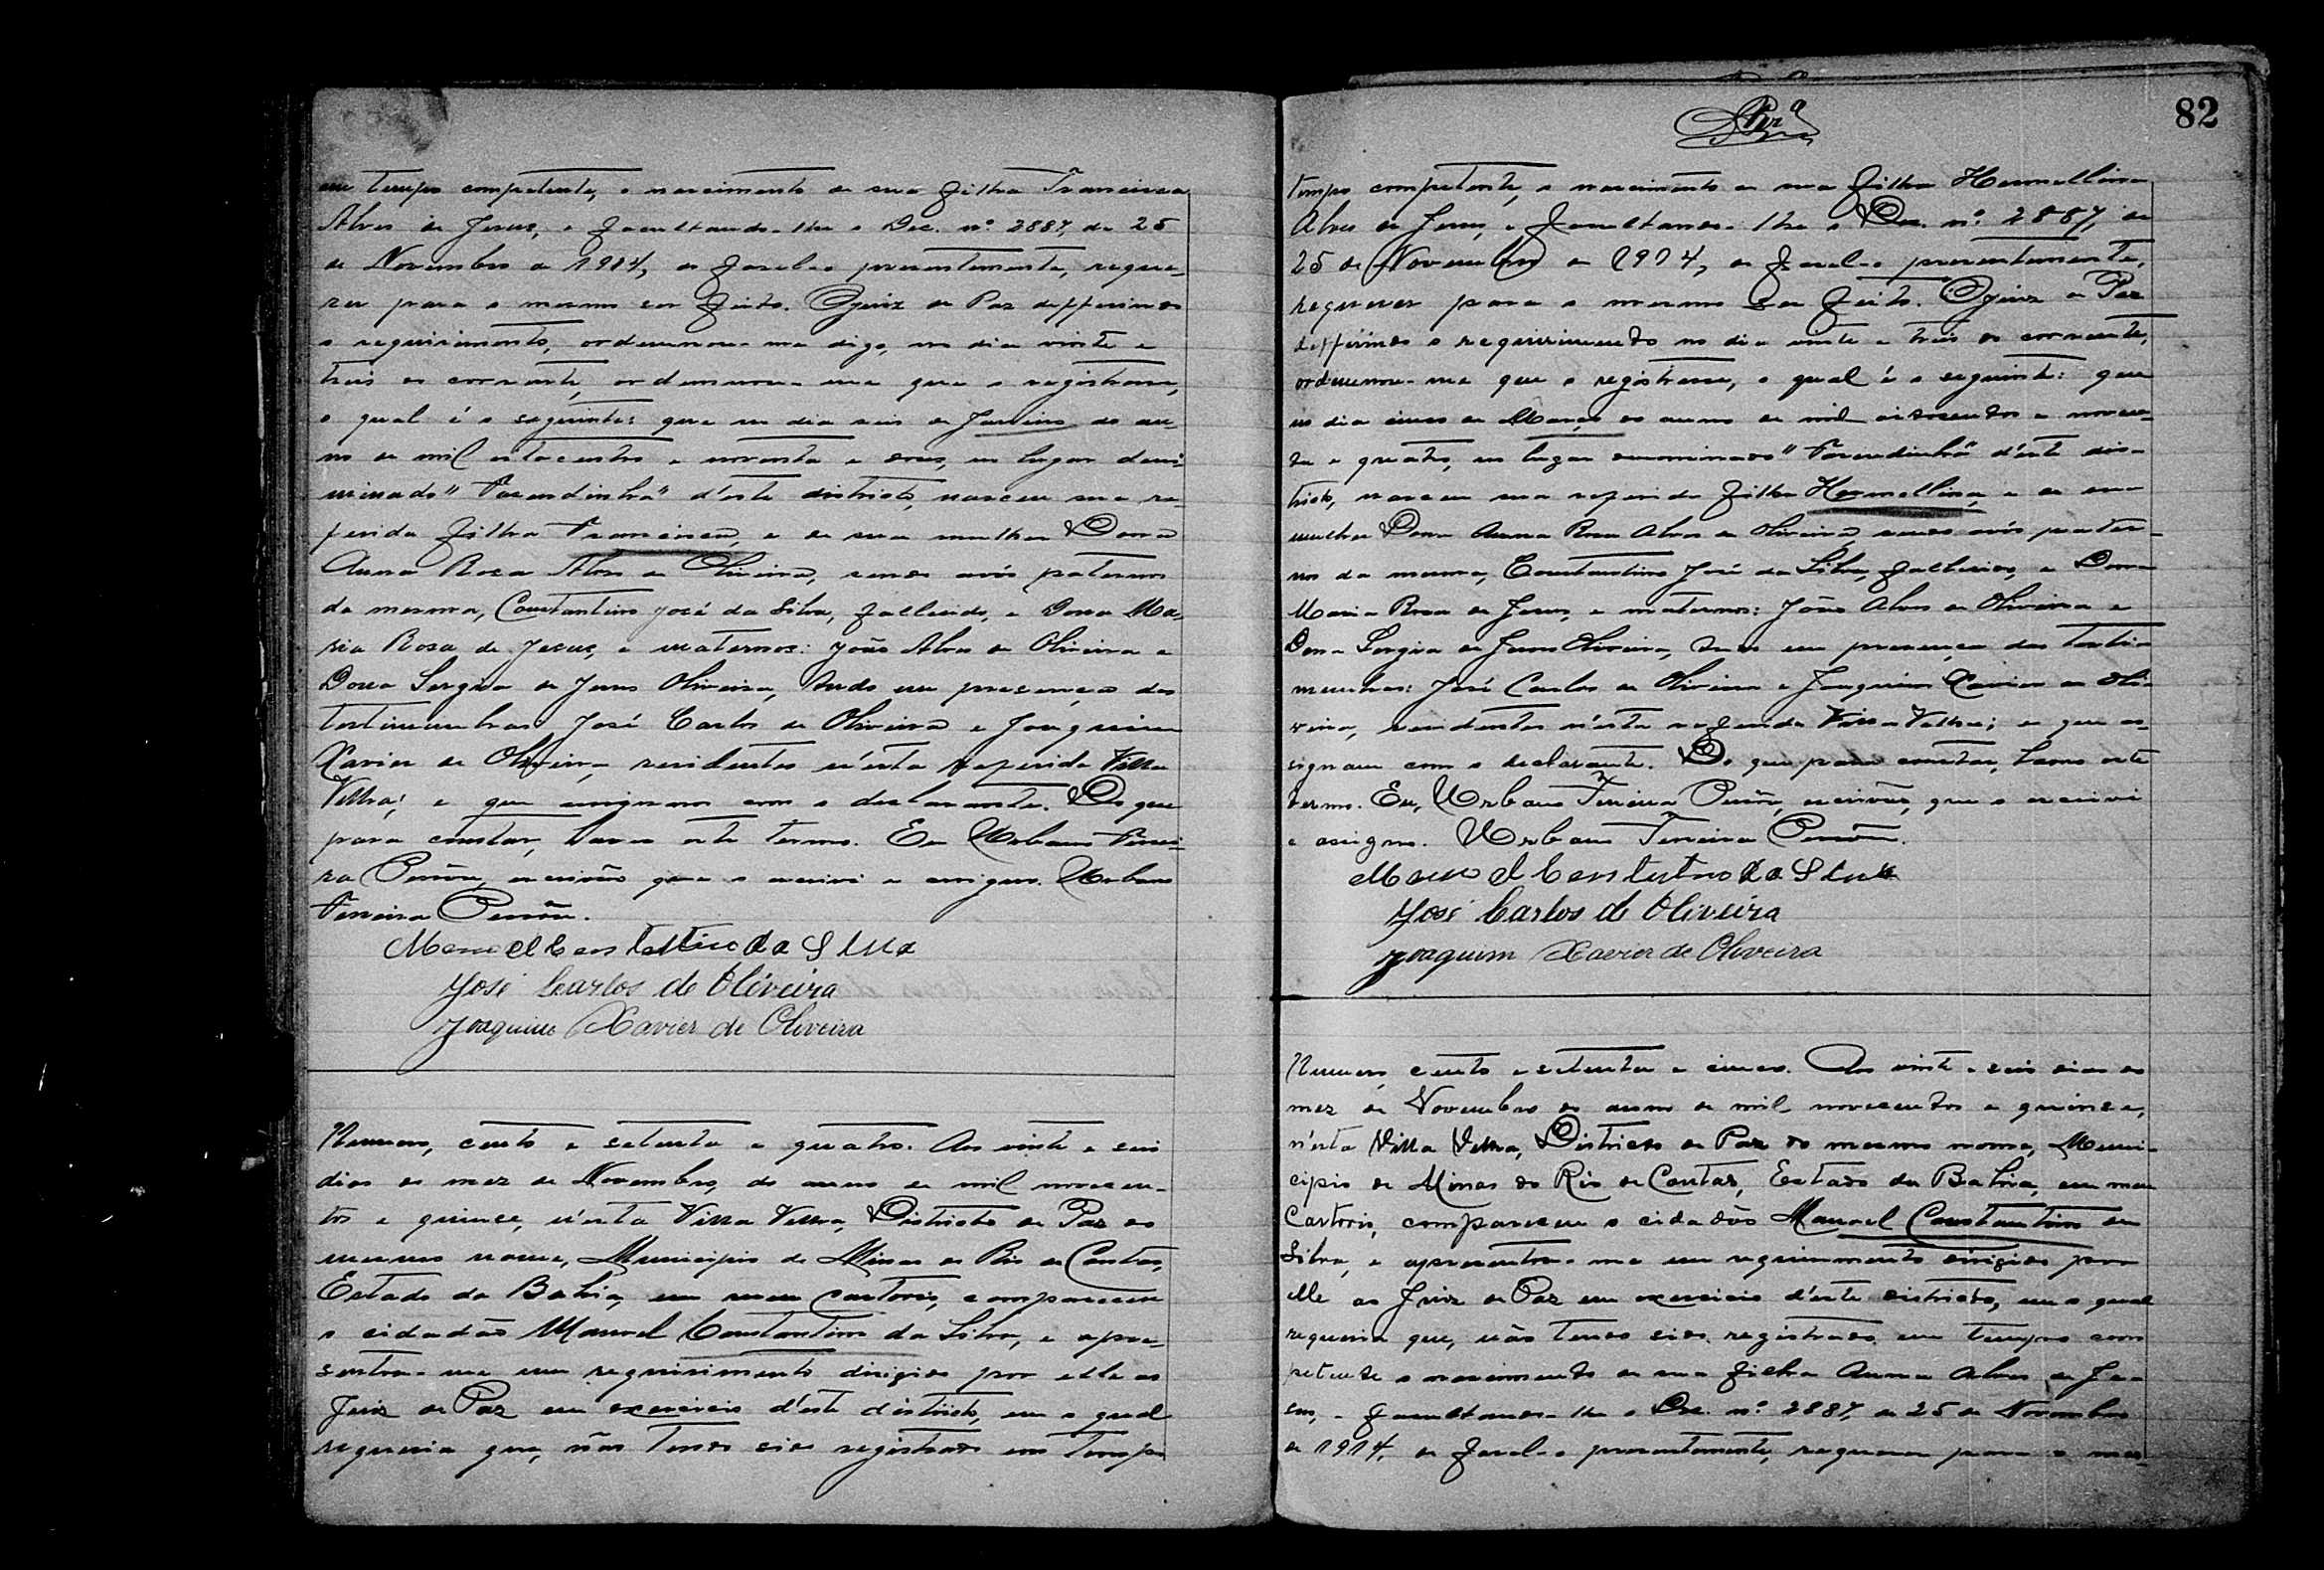 em tempo competente, o nascimento de sua filha Francisca
Alves de Jesus, e facultando-lhe o Dec. nº 2887, de 25
de Novembro de 1914, de fazel-o presentemente, reque-
rer para o mesmo ser feito. O Juiz de Paz defferindo
o requirimento, ordennou-me digo, no dia vinte e
treis do corrente, ordennou-me que o registrasse,
o qual é o seguinte: que no dia seis de Janeiro do an-
no de mil oitocentos e noventa e dous, no lugar deno-
minado "Fazendinha" d'este districto, nasceu sua re-
ferida filha Francisca, e de sua mulher Dona
Anna Rosa Alves de Oliveira, sendo avós paternos
da mesma, Constantino José da Silva, fallecido, e Dona Ma-
ria Rosa de Jesus, e maternos: João Alves de Oliveira e
Dona Sergia de Jesus Oliveira, tudo em presença das
testimunhas José Carlos de Oliveira e Joaquim
Xavier de Oliveira, residentes n'esta referida Villa
Velha; e que assignam com o declarante. Do que
para constar, lavro este termo. Eu Urbano Ferrei-
ra escrivão que o escrivi e assigno. Urbano
Ferreira
Manoel Constantino da Silva
José Carlos de Oliveira
Joaquim Xavier de Oliveira
Numero, cento e setenta e quatro. Aos vinte e seis
dias do mez de Novembro, do anno de mil novecen-
tos e quinze, n'esta Villa Velha, Districto de Paz do
mesmo nome, Municipio de Minas do Rio de Contas,
Estado da Bahia, em meu cartorio, compareceu
o cidadão Manoel Constantino da Silva, e apre-
sentou-me um requirimento dirigido por elle ao
Juiz de Paz em exercicio d'este districto, em o qual
requeria que, não tendo sido registrado em tempo
82
tempo competente, o nascimento de sua filha Hermellina
Alves de Jesus, e facultando-lhe o Dec. nº 2887, de
25 de Novembro de 1914, de fazel-o presentemente,
requerer para o mesmo ser feito. O Juiz de Paz
defferindo o requirimento no dia vinte e treis do corrente,
ordennou-me que o registrasse, o qual é o seguinte: que
no dia cinco de Março do anno de mil oitocentos e noven-
ta e quatro, no lugar denominado "Fazendinha" d'este dis-
tricto, nasceu sua referida filha Hermellina, e de sua
mulher Dona Anna Rosa Alves de Oliveira, sendo avós pater-
nos da mesma, Constantino José da Silva, fallecido, e Dona
Maria Rosa de Jesus, e maternos: João Alves de Oliveira e
Dona Sergia de Jesus Oliveira, tudo em presença das testi-
munhas: José Carlos de Oliveira e Joaquim Xavier de Oli-
veira, residentes n'esta referida Villa Velha; e que as-
signam com o declarante. Do que para constar, lavro este
termo. Eu, Urbano Ferreira escrivão, que o escrivi
e assigno. Urbano Ferreira
Manoel Constantino da Silva
José Carlos de Oliveira
Joaquim Xavier de Oliveira
Numero, cento e setenta e cinco. Aos vinte e seis dias do
mez de Novembro do anno de mil novecentos e quinze,
n'esta Villa Velha, Districto de Paz do mesmo nome, Muni-
cipio de Minas do Rio de Contas, Estado da Bahia, em meu
Cartorio, compareceu o cidadão Manoel Constantino da
Silva, e apresentou-me um requirimento dirigido por
elle ao Juiz de Paz em exercicio d'este districto, em o qual
requeria que, não tendo sido registrado em tempo com
petente o nascimento de sua filha Anna Alves de Je-
sus, e facultando-lhe o Dec. nº 2887, de 25 de Novembro
de 1914, de fazel-o presentemente, requerer para o mes-